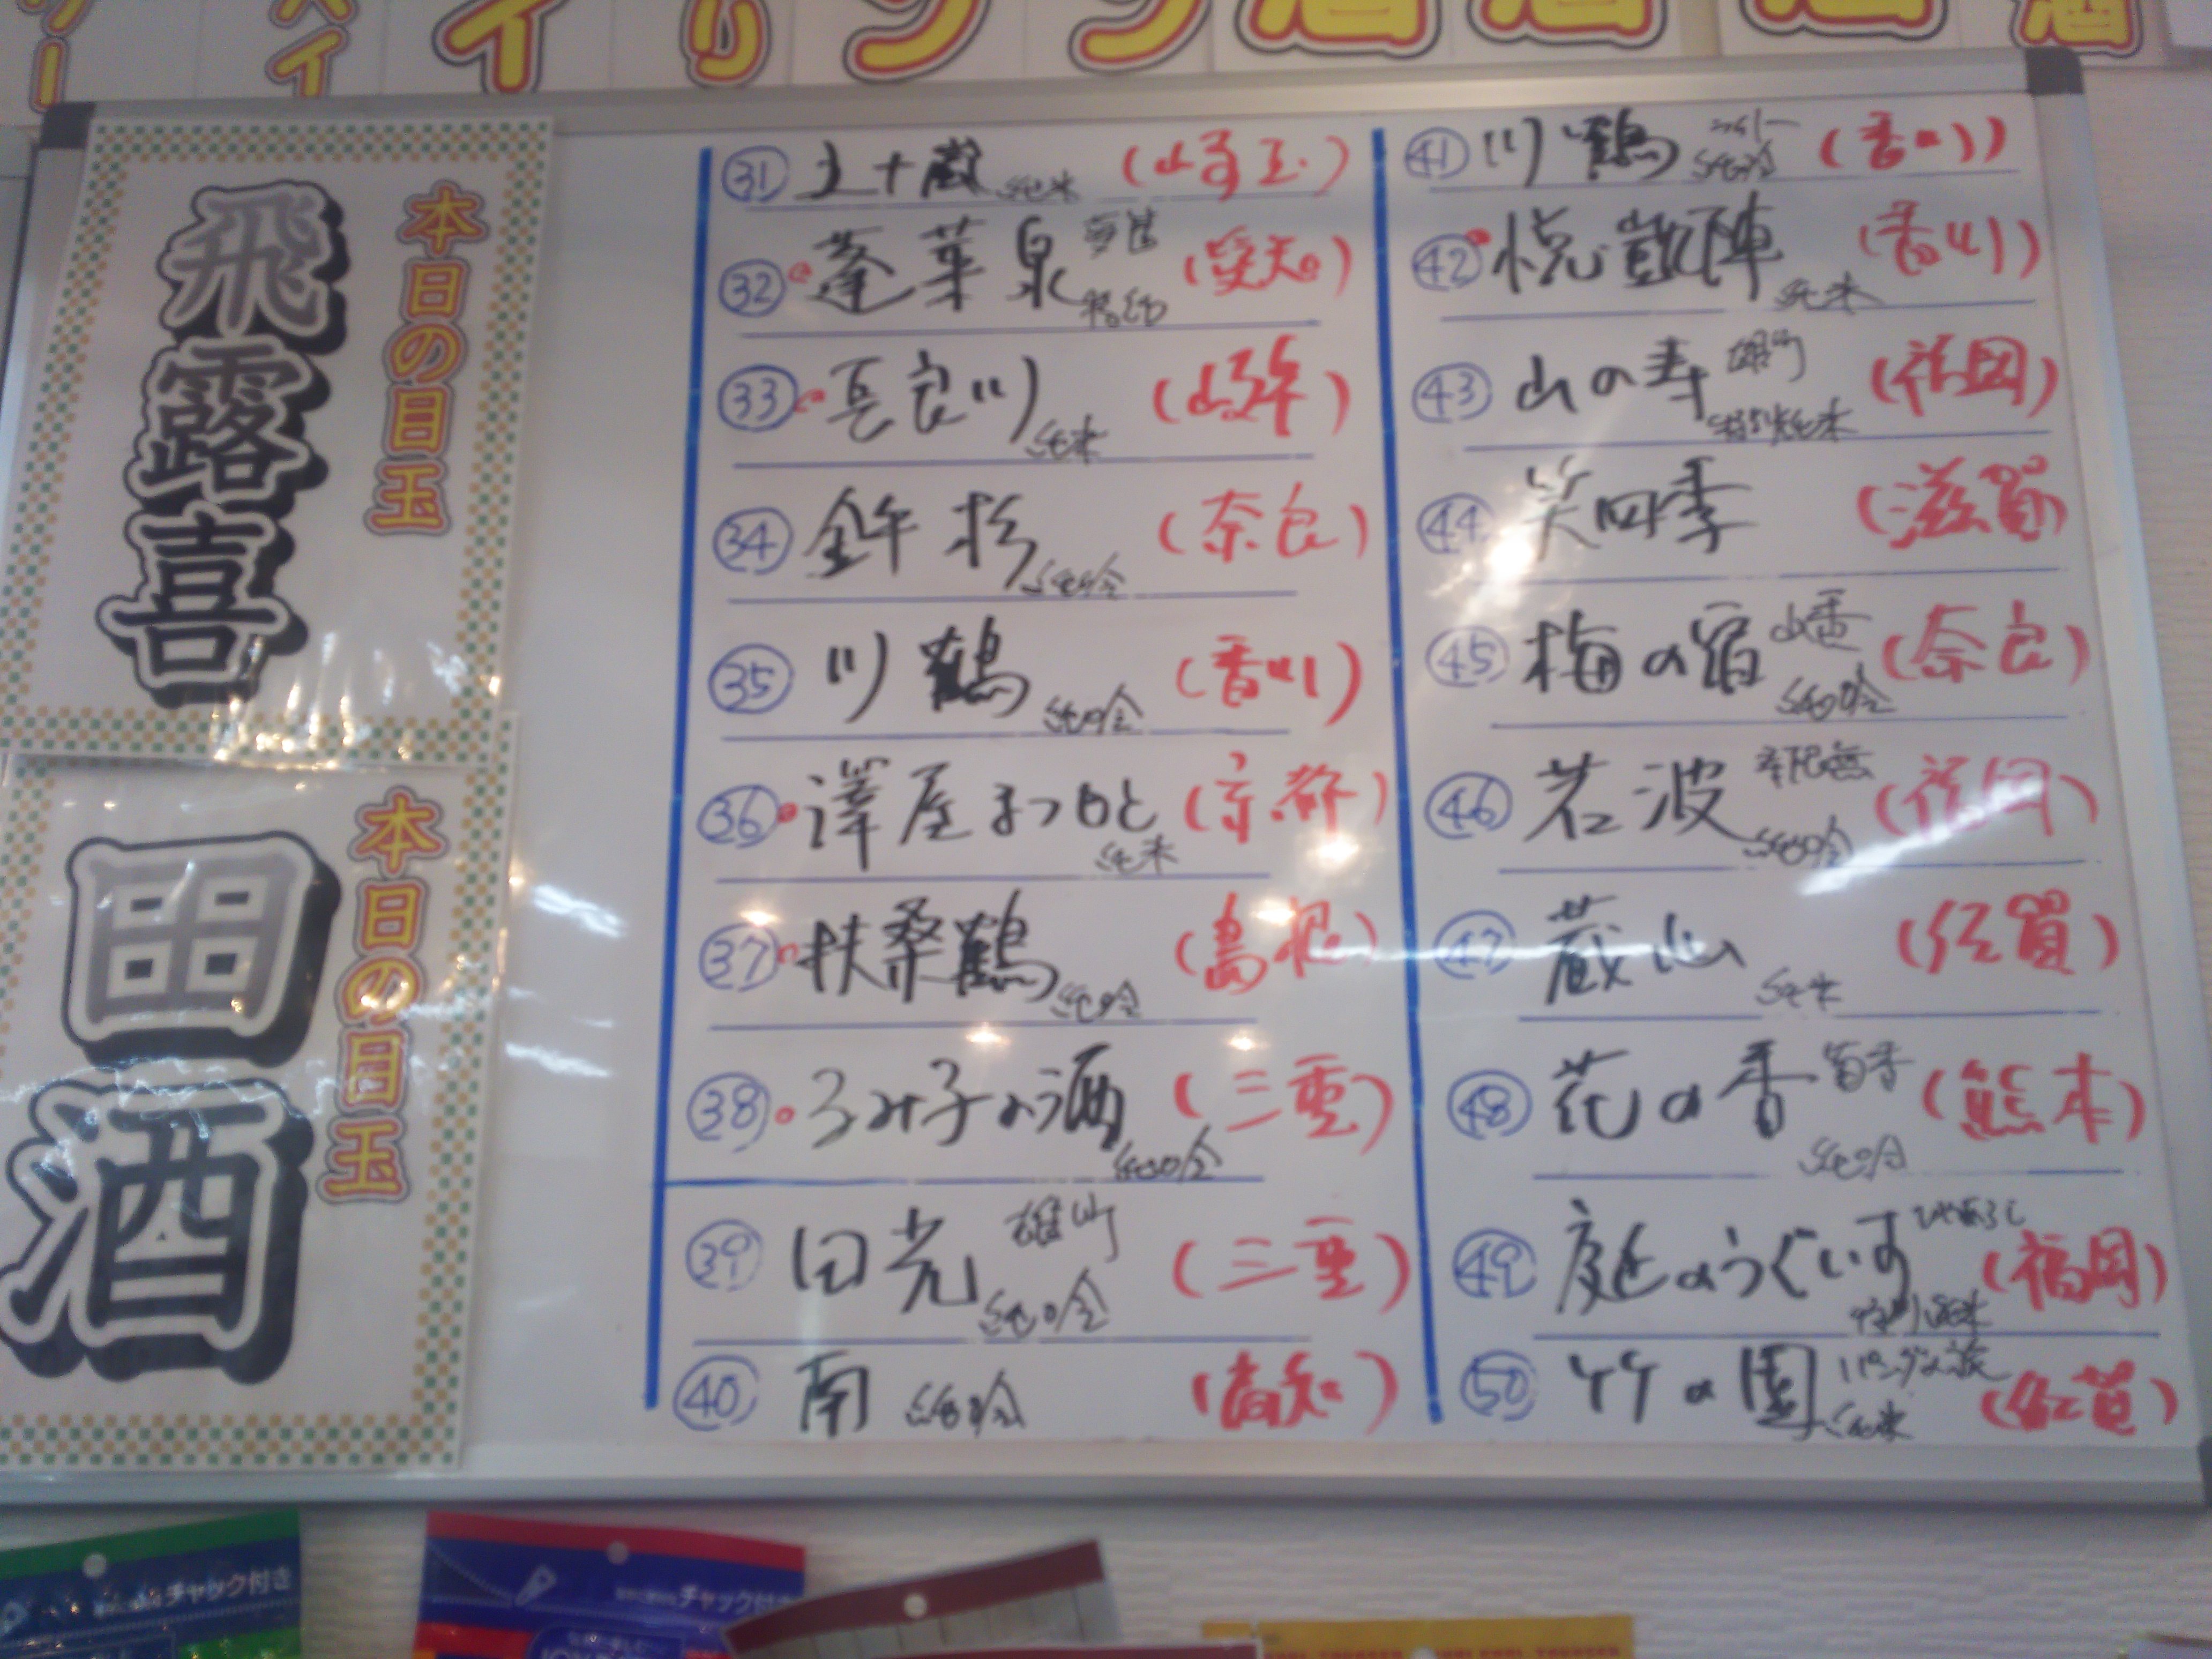 本日の目玉
飛露喜
本日の目玉
田酒
㉛ 五十嵐 純米 (埼玉)
㉜ 蓬莱泉 特純 (愛知)
㉝ 長良川 純米 (岐阜)
㉞ 金鉾杉 純吟 (奈良)
㉟ 川鶴 純吟 (香川)
㊱ 澤屋まつもと 純米 (京都)
㊲ 扶桑鶴 純吟 (島根)
㊳ るみ子の酒 純吟 (三重)
㊴ 田光 雄町 純吟 (三重)
㊵ 南 純吟 (高知)
㊶ 川鶴 純吟 (香川)
㊷ 悦凱陣 純米 (香川)
㊸ 山の寿 雄町 特別純米 (福岡)
㊹ 笑四季 (滋賀)
㊺ 梅の宿 山香 純吟 (奈良)
㊻ 若波 純吟 (福岡)
㊼ 蔵心 純米 (佐賀)
㊽ 花の香 純吟 (熊本)
㊾ 庭のうぐいす ひやおろし 特別純米 (福岡)
㊿ 竹の園 純米 (佐賀)
チャック付き
チャック付き